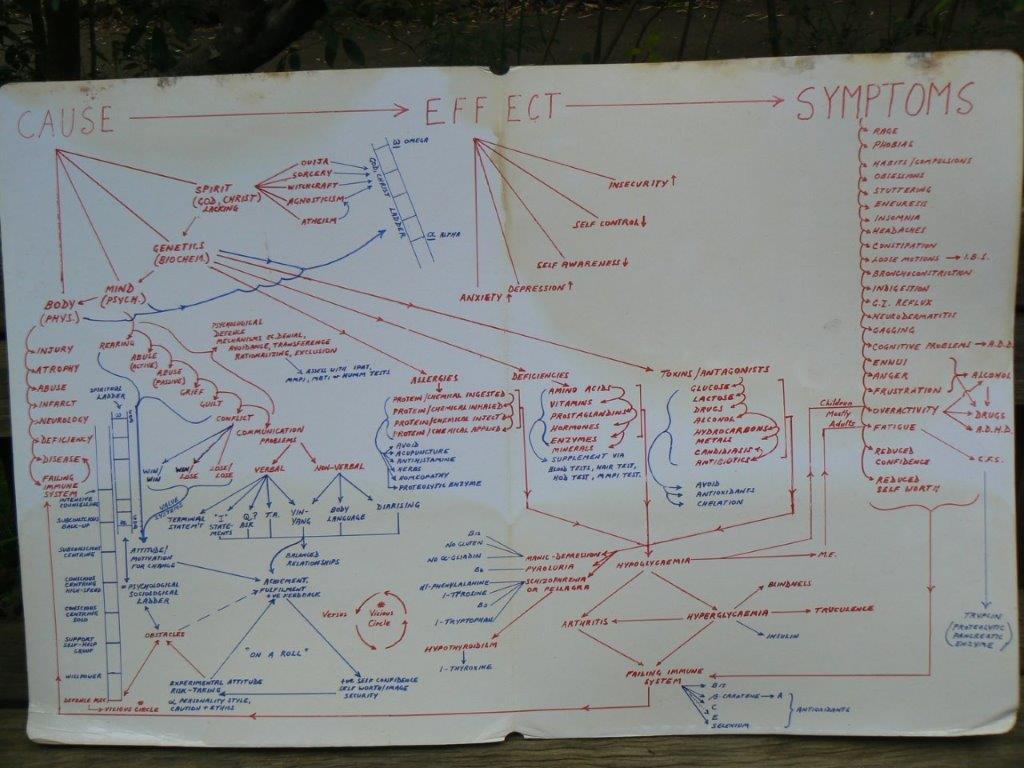 CAUSE
EFFECT
SYMPTOMS
SPIRIT
(GOD, CHRIST)
LACKING
OUIJA
SORCERY
WITCHCRAFT
AGNOSTICISM
ATHEISM
OMEGA
GOD, CHRIST LADDER
α ALPHA
GENETICS
(BIOCHEM.)
MIND
(PSYCH.)
BODY
(PHYS.)
INJURY
ATROPHY
ABUSE
INFARCT
NEUROLOGY
DEFICIENCY
DISEASE
FAILING
IMMUNE
SYSTEM
REARING
ABUSE
(ACTIVE)
ABUSE
(PASSIVE)
GRIEF
GUILT
CONFLICT
COMMUNICATION
PROBLEMS
PSYCHOLOGICAL
DEFENCE
MECHANISMS EG. DENIAL,
AVOIDANCE, TRANSFERENCE
RATIONALIZING, EXCLUSION
ASSESS WITH IPAT,
MMPI, MBTI or HUMM TESTS
SPIRITUAL
LADDER
WIN/
WIN
WIN/
LOSE
LOSE/
LOSE
VALUE
SYSTEMS
VERBAL
NON-VERBAL
TERMINAL
STATEM'T
"I"
STATE-
MENTS
Q.?
ASK
T.A.
YIN-
YANG
BODY
LANGUAGE
DIARISING
BALANCED
RELATIONSHIPS
ATTITUDE/
MOTIVATION
FOR CHANGE
PSYCHOLOGICAL
SOCIOLOGICAL
LADDER
OBSTACLES
ACHIEMENT,
FULFILMENT
+VE FEEDBACK
"ON A ROLL"
EXPERIMENTAL ATTITUDE
RISK-TAKING
α PERSONALITY STYLE,
CAUTION + ETHICS
+VE SELF CONFIDENCE
SELF WORTH/IMAGE
SECURITY
Versus
Vicious
Circle
INTENSIVE
COUNSELLING
SUBCONSCIOUS
BACK-UP
SUBCONSCIENT
CENTRING
CONSCIOUS
CENTRING
HIGH-SPEED
CONSCIOUS
CENTRING
SOLO
SUPPORT
SELF-HELP
GROUP
WILLPOWER
DEFENCE MEC
VICIOUS CIRCLE
INSECURITY ↑
SELF CONTROL ↓
SELF AWARENESS ↓
DEPRESSION ↑
ANXIETY ↑
ALLERGIES
PROTEIN/CHEMICAL INGESTED
PROTEIN/CHEMICAL INHALED
PROTEIN/CHEMICAL INJECT
PROTEIN/CHEMICAL APPLIED
AVOID
ACUPUNCTURE
ANTIHISTAMINE
HERBS
HOMEOPATHY
PROTEOLYTIC ENZYME
DEFICIENCIES
AMINO ACIDS
VITAMINS
PROSTAGLANDINS
HORMONES
ENZYMES
MINERALS
SUPPLEMENT VIA
BLOOD TESTS, HAIR TEST,
HOD TEST, MMPI TEST.
TOXINS/ANTAGONISTS
GLUCOSE
LACTOSE
DRUGS
ALCOHOL
HYDROCARBONS
METALS
CANDIDIASIS
ANTIBIOTICS
AVOID
ANTIOXIDANTS
CHELATION
Children
Mostly
Adults
B12
NO GLUTEN
NO α-GLIADIN
B6
dl-PHENYLALANINE
l-TYROSINE
B3
l-TRYPTOPHAN
MANIC-DEPRESSION
PYROLURIA
SCHIZOPHRENIA
OR PELLAGRA
HYPOTHYROIDISM
l-THYROXINE
HYPOGLYCAEMIA
M.E.
ARTHRITIS
HYPERGLYCAEMIA
BLINDNESS
TRUCULENCE
INSULIN
FAILING IMMUNE
SYSTEM
B12
β-CAROTENE → A
C
E
SELENIUM
ANTIOXIDANTS
RAGE
PHOBIAS
HABITS/COMPULSIONS
OBESSIONS
STUTTERING
ENEURESIS
INSOMNIA
HEADACHES
CONSTIPATION
LOOSE MOTIONS → I.B.S.
BRONCHOCONSTRICTION
INDIGESTION
G.I. REFLUX
NEURODERMATITIS
GAGGING
COGNITIVE PROBLEMS → A.D.D.
ENNUI
ANGER
FRUSTRATION
OVERACTIVITY
FATIGUE
ALCOHOL
DRUGS
A.D.H.D.
C.F.S.
REDUCED
CONFIDENCE
REDUCED
SELF WORTH
TRYPCIN
(PROTEOLYTIC
PANCREATIC
ENZYME)